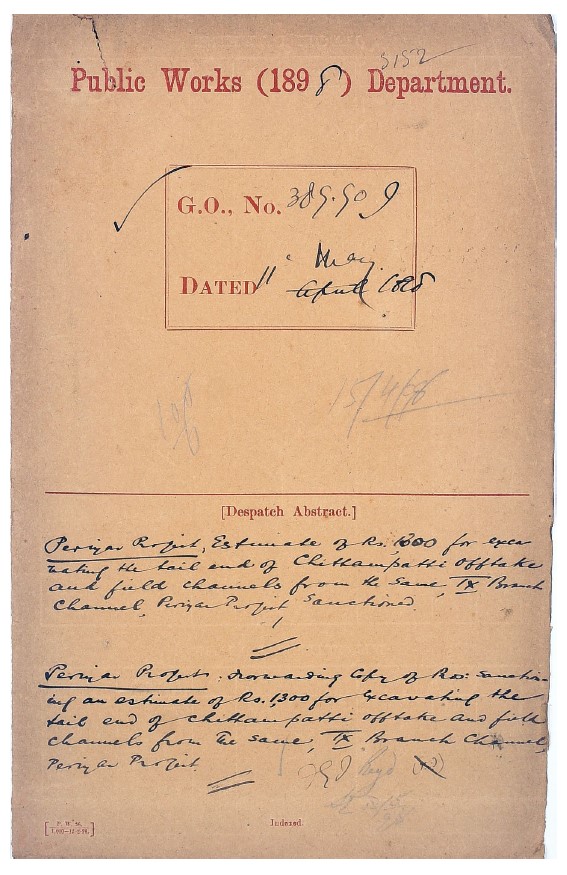 5152
Public Works (1898) Department.
G.O., No. 389.90 I
May
DATED 11 April 1898
[Despatch Abstract.]
Periyar Project, Estimate of Rs. 1300 for exca
vating the tail end of Chittampatti Offtake
and field channels from the same, IX Branch
Channel, Periyar Project, Sanctioned.
Periyar Project. Forwarding Copy of Pro: sanction-
ing an estimate of Rs. 1,300 for excavating the
tail end of Chittampatti offtake and field
channels from the same, IX Branch Channel,
Periyar Project.
Indexed.